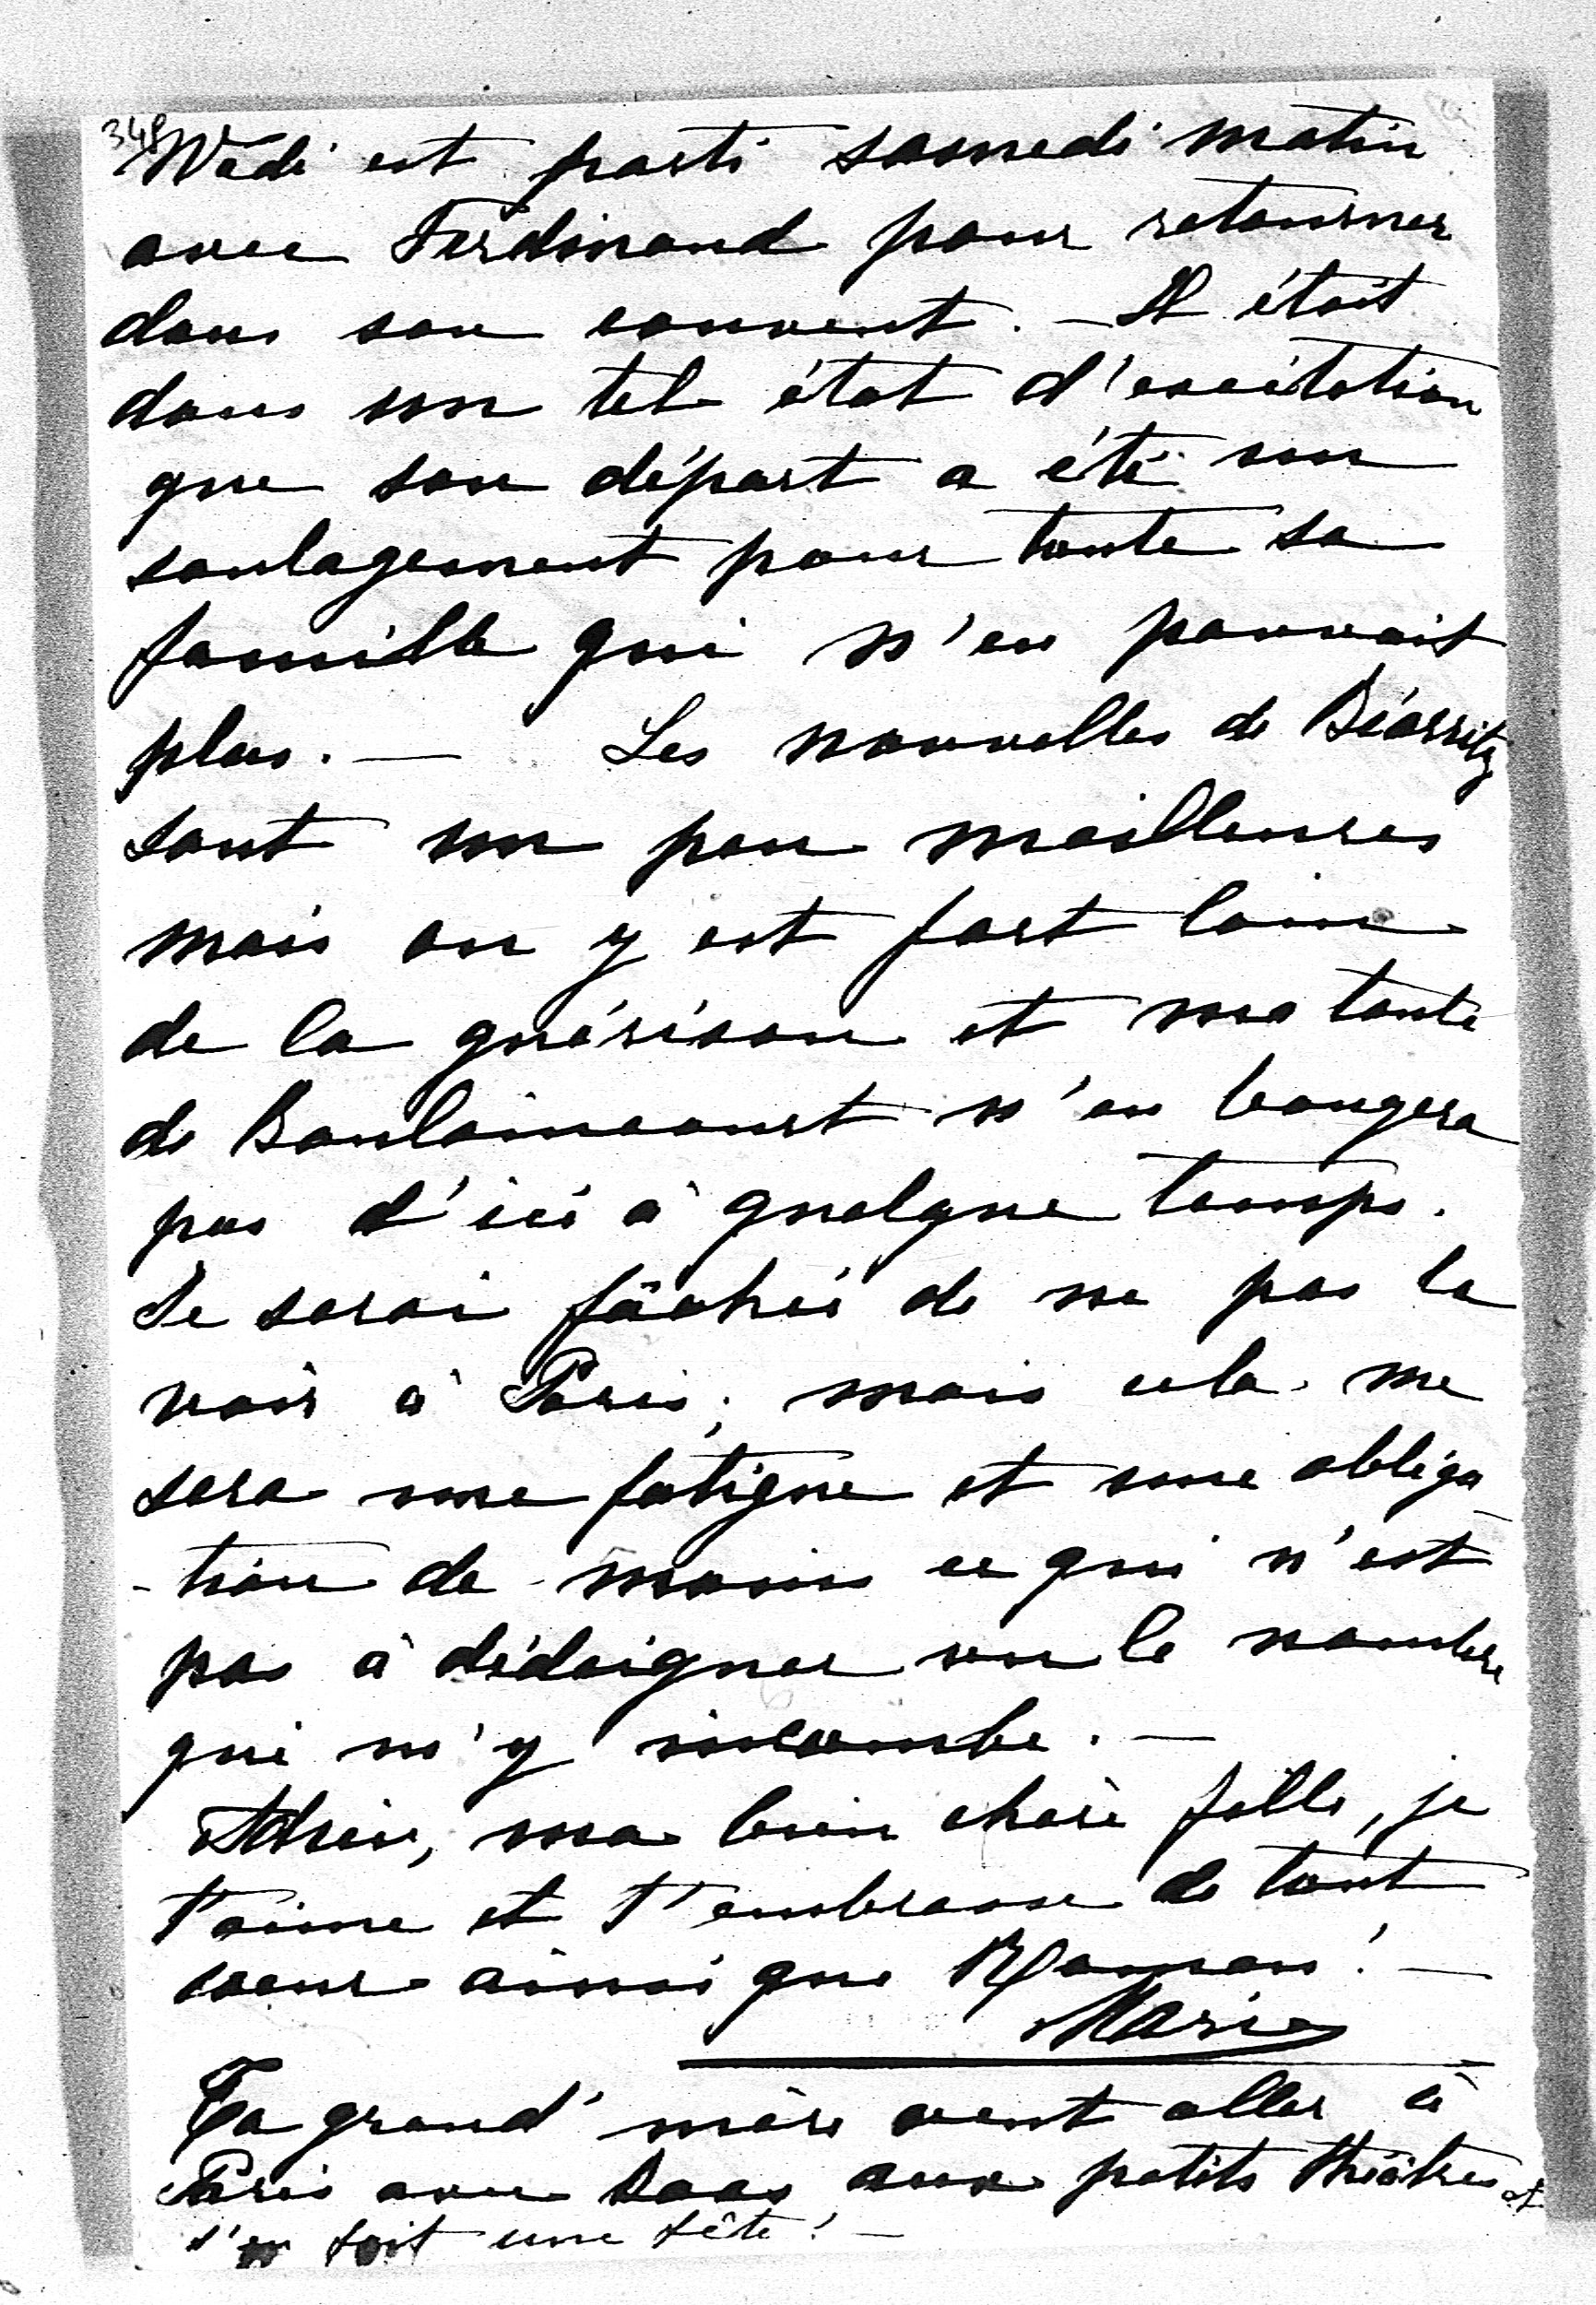 348
Wédi est parti samedi matin
avec Ferdinand pour retourner
dans son couvent. – Il était
dans un tel état d'excitation
que son départ a été un
soulagement pour toute sa
famille qui n'en pouvait
plus. — Les nouvelles de Biarritz
sont un peu meilleures
mais on y est fort loin
de la guérison et ma tante
de Baulaincourt n'en bougera
pas d'ici à quelque temps.
Je serai fâchée de ne pas la
voir à Paris; mais cela me
sera une fatigue et une obliga
-tion de moins ce qui n'est
pas à dédaigner vu le nombre
qui m'y incombe. —
Adieu, ma bien chère fille, je
t'aime et t'embrasse de tout
coeur ainsi que Roman! —
Marie
Ta grand'mère veut aller à
Paris avec aux petits théâtres et
s'en fait une fête! —